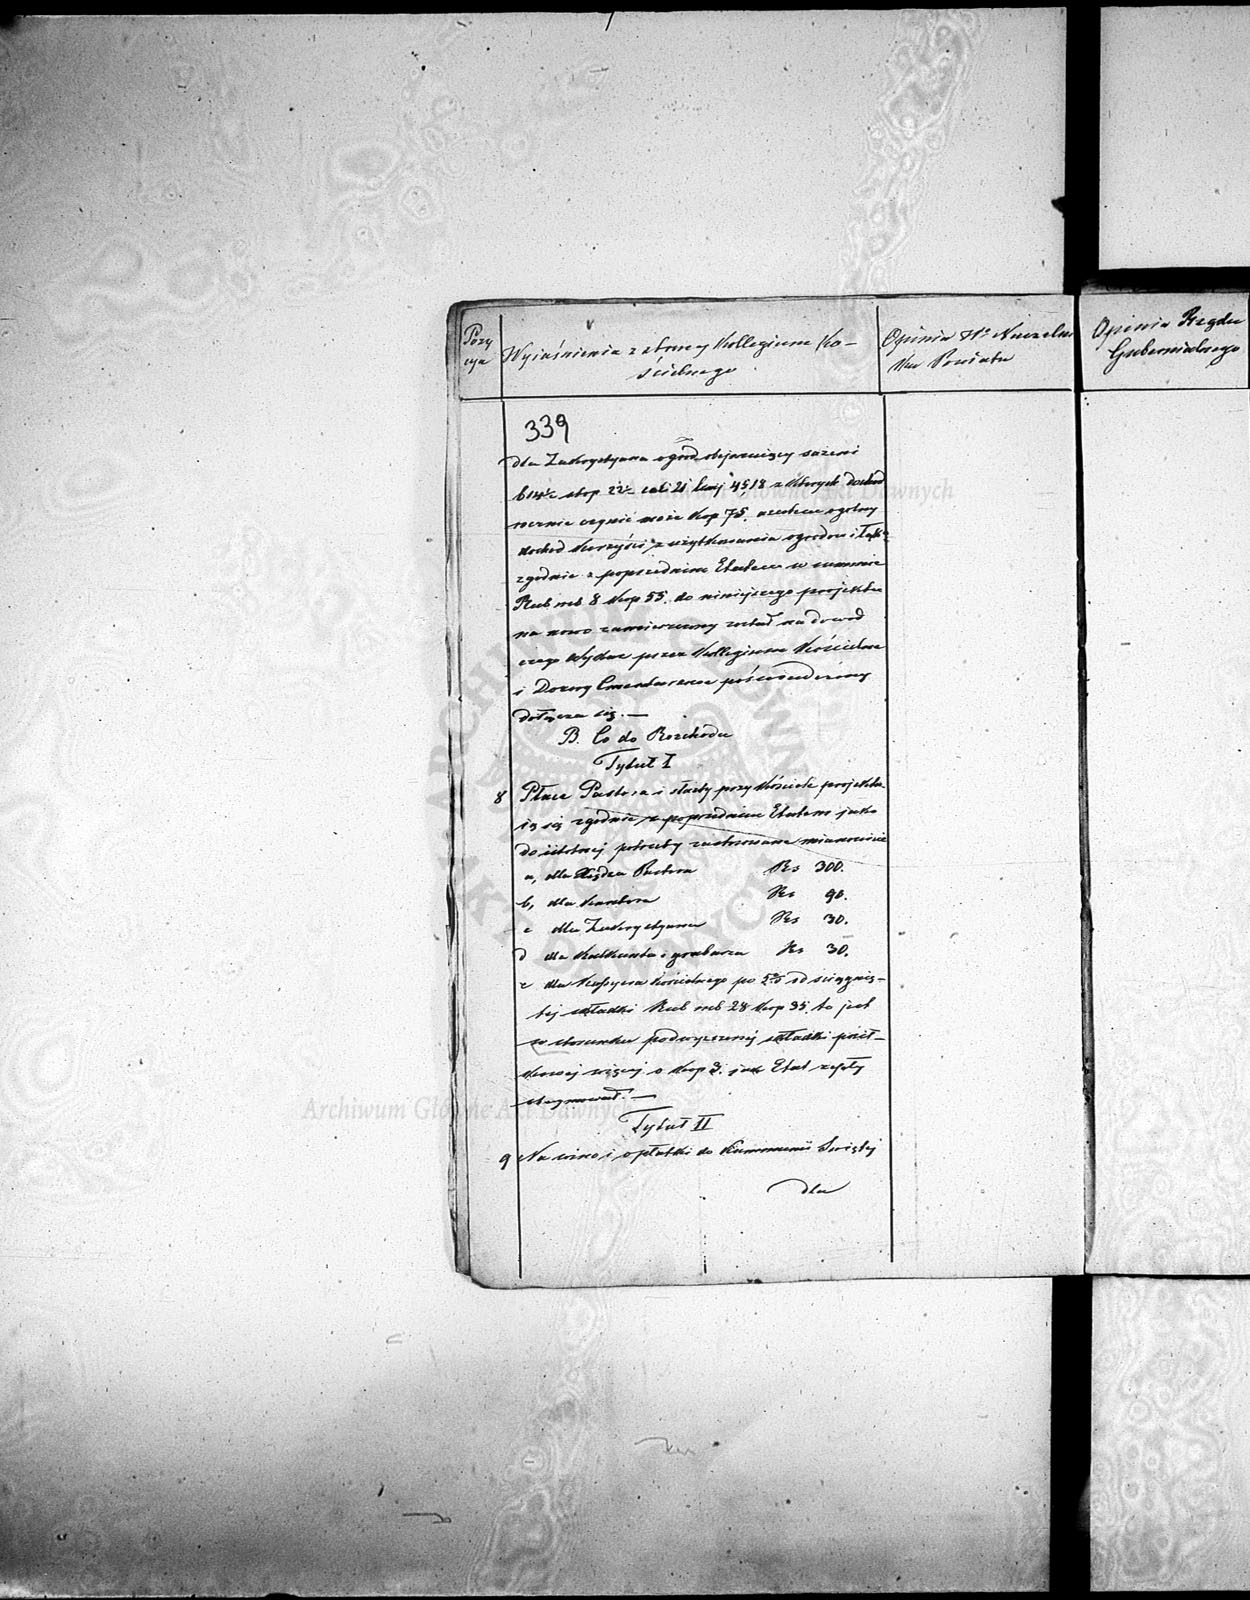 Pozy
cya
Wyjaśnienia z strony Kollegium Ko-
ścielnego
Opinia Wo Naczelni
ka Powiatu
Opinia Rządu
Gubernialnego
339
dla Zakrystyana ogród obejmujący sażeni
stop cali 21 linij z których dochód
rocznie czynić może kop 75. ogólny
dochód korzyści z użytkowania ogrodów i łąk
zgodnie z poprzednim Etatem w summie
Rub sreb 8 kop 55. do niniejszego projektu
na nowo zamieszczony został na dowód
czego Wykaz przez Kollegium Kościelne
i Dozory Cmentarzowe poświadczony
dołącza się. —
B. Co do Rozchodu
Tytuł I
8 Płace Pastora i służby przy kościele projektu-
ią się zgodnie z poprzednim Etatem jako
do istotnej potrzeby zastosowane mianowicie
a, dla Księdza Pastora Rs 300.
b, dla Kantora Rs 90.
c dla Zakrystyana Rs 30.
d dla Kalkanta i grabarza Rs 30.
e dla Kassyera Kościelnego po od ściągnię-
tej składki Rub sreb 28 kop 35. to jest
w stosunku podwyższonej składki
więcej o kop 3. jak Etat zeszły
obejmował. —
Tytuł II
9 Na wino i opłatki do Kommunii Świętej
dla
Archiwum Główne Akt Dawnych
Archiwum Główne Akt Dawnych
ARCHIWUM GŁÓWNE AKT DAWNYCH